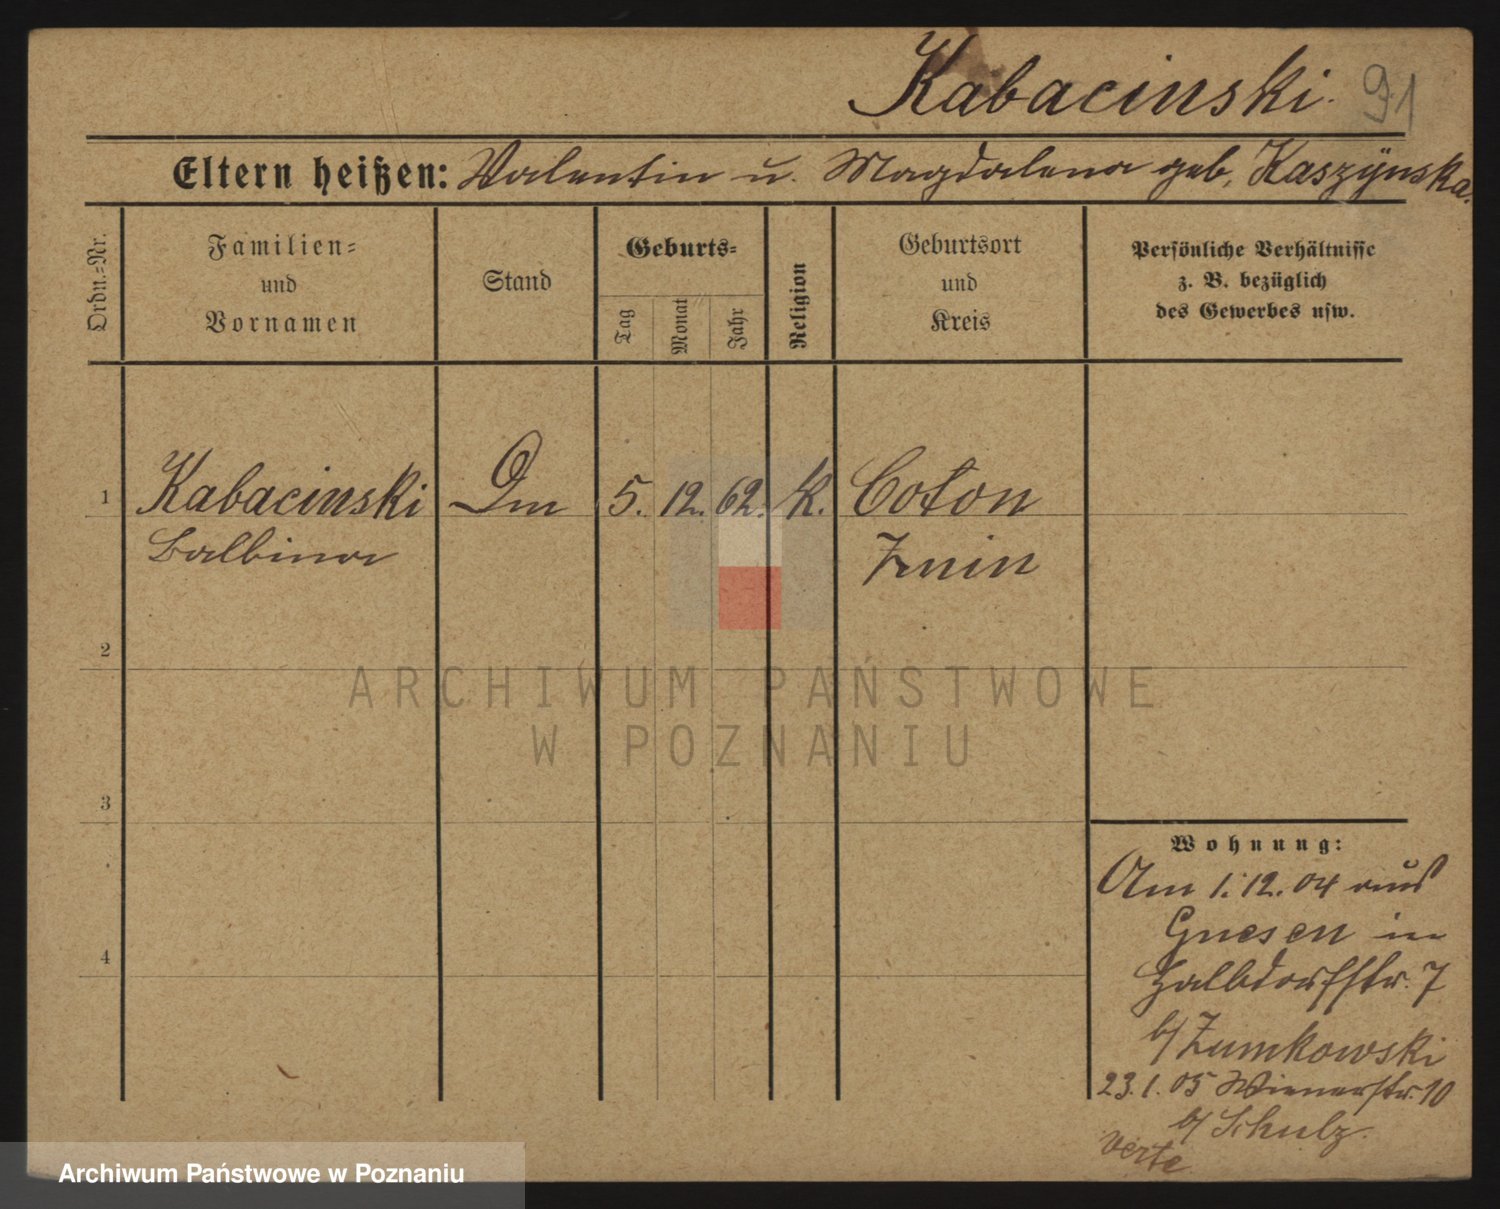 Kabacinski.
91
Eltern heißen: Valentin u. Magdalena geb. Kaszÿnska.
Ordn.=Nr.
Familien=
und
Vornamen
Stand
Geburts=
Tag
Monat
Jahr
Religion
Geburtsort
und
Kreis
Persönliche Verhältnisse
z. B. bezüglich
des Gewerbes usw.
1 Kabacinski 5. 12. 62. K. Coton
Balbina Znin
2
ARCHIWUM PAŃSTWOWE
W POZNANIU
3
4
Wohnung:
Am 1.12.04 aus
Gnesen in
Halbdorfstr. 7
b/ Zumkowski
23.1.05 Wienerstr. 10
b/ Schulz.
verte
Archiwum Państwowe w Poznaniu